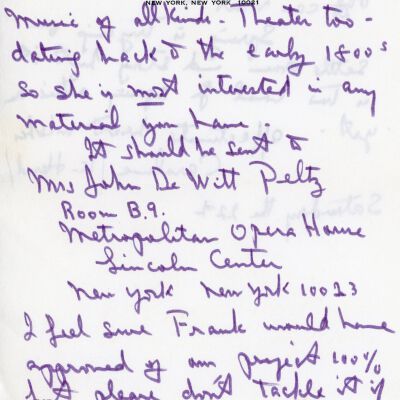 NEW YORK, NEW YORK 10021
Music of all kinds. Theater too -
dating back to the early 1800s
so she is most interested in any
material you have.
It should be sent to
Mrs John De Witt Peltz
Room B.9.
Metropolitan Opera House
Lincoln Center
New York New York 10023
I feel sure Frank would have
approved of our project 100%
but please don't tackle it if